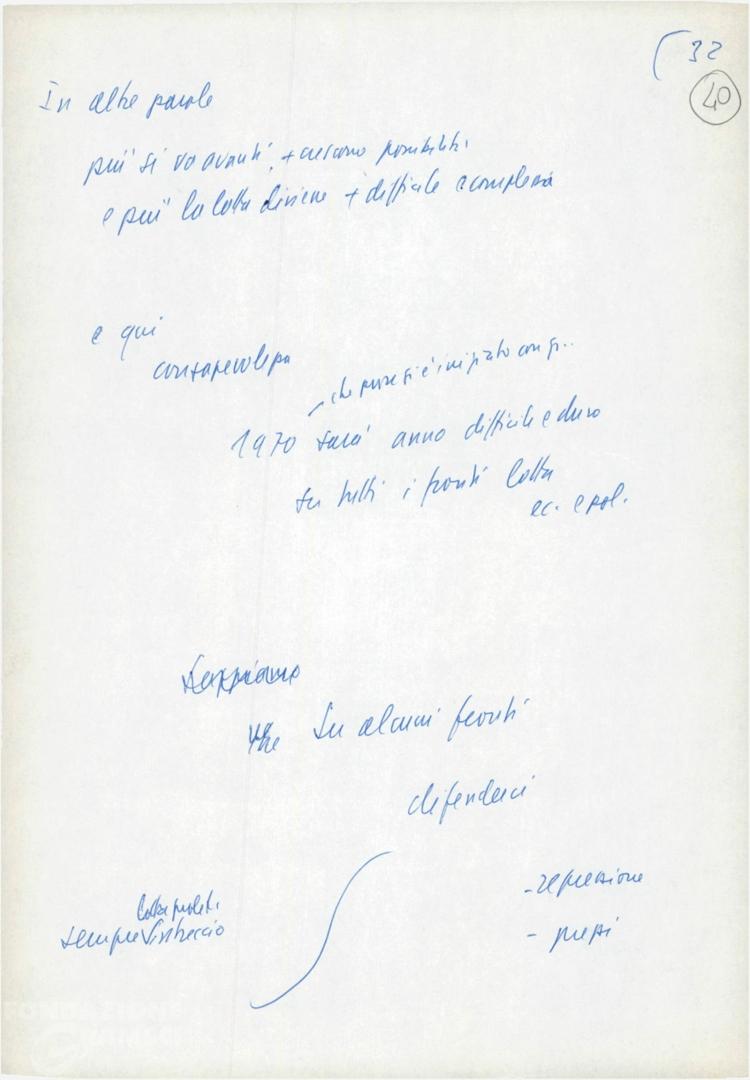 32
40
In altre parole
più si va avanti, + crescono possibilità
e più la lotta diviene + difficile e complessa
e qui
consapevolezza
che pure si è iniziato con
1970 sarà anno difficile e duro
su tutti i fronti lotta
ec. e pol.
Sappiamo
che su alcuni fronti
difenderci
- repressione
- prezzi
lotta
sempre intreccio
FONDAZIONE